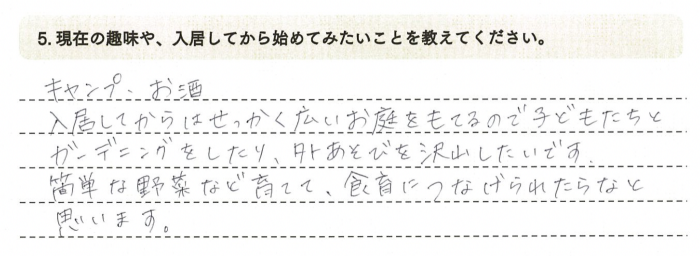 5. 現在の趣味や、入居してから始めてみたいことを教えてください。
キャンプ、お酒
入居してからはせっかく広いお庭をもてるので子どもたちと
ガーデニングをしたり、外あそびを沢山したいです.
簡単な野菜など育てて、食育につなげられたらなと
思います。